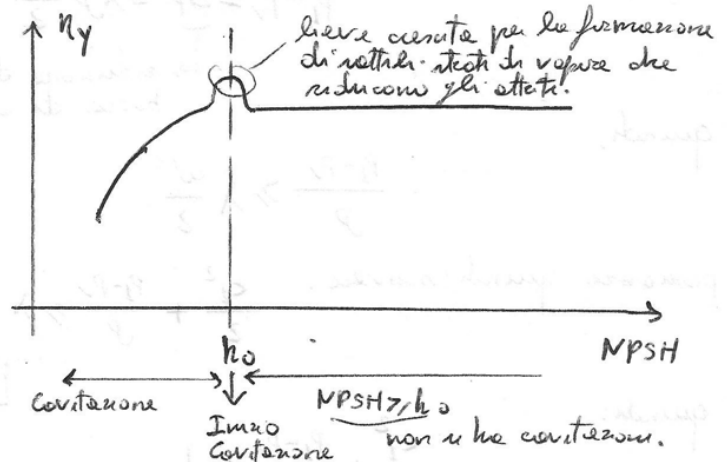 ηy
lieve crescita per la formazione
di sottili strati di vapore che
riducono gli attriti.
quindi
h₀
NPSH
Cavitazione
NPSH ≥ h₀
Inizio
Cavitazione
non si ha cavitazione.